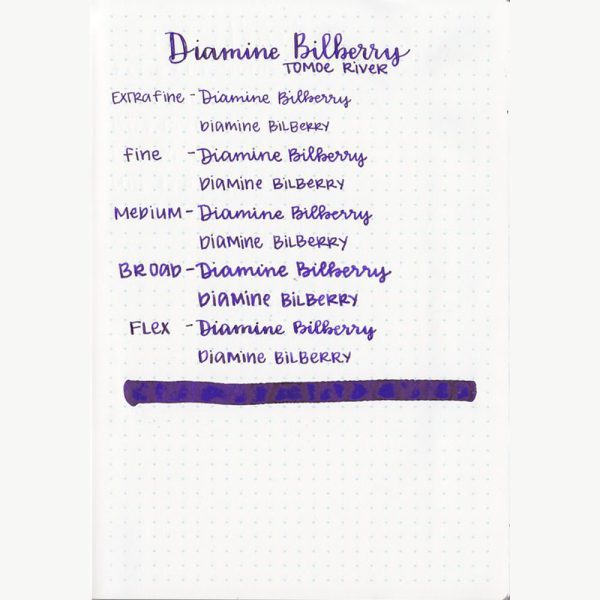 Diamine Bilberry
TOMOE RIVER
EXTRAFINE - Diamine Bilberry
DIAMINE BILBERRY
FINE - Diamine Bilberry
DIAMINE BILBERRY
MEDIUM - Diamine Bilberry
DIAMINE BILBERRY
BROAD - Diamine Bilberry
DIAMINE BILBERRY
FLEX - Diamine Bilberry
DIAMINE BILBERRY